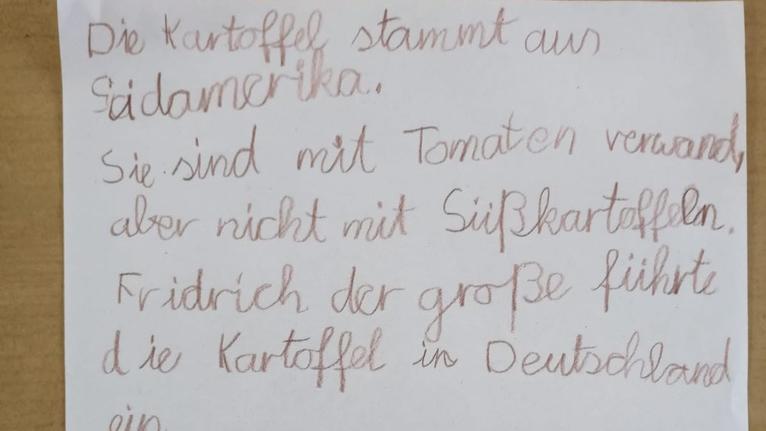 Die Kartoffel stammt aus
Südamerika.
Sie sind mit Tomaten verwand,
aber nicht mit Süßkartoffeln.
Fridrich der große führte
die Kartoffel in Deutschland
ein